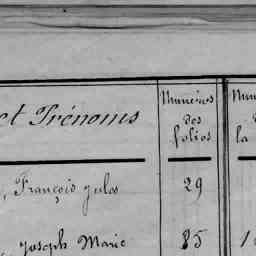 et Prénoms
Numéros
des
folios
Num
la
, François Jules
29
, Joseph Marie
85
1